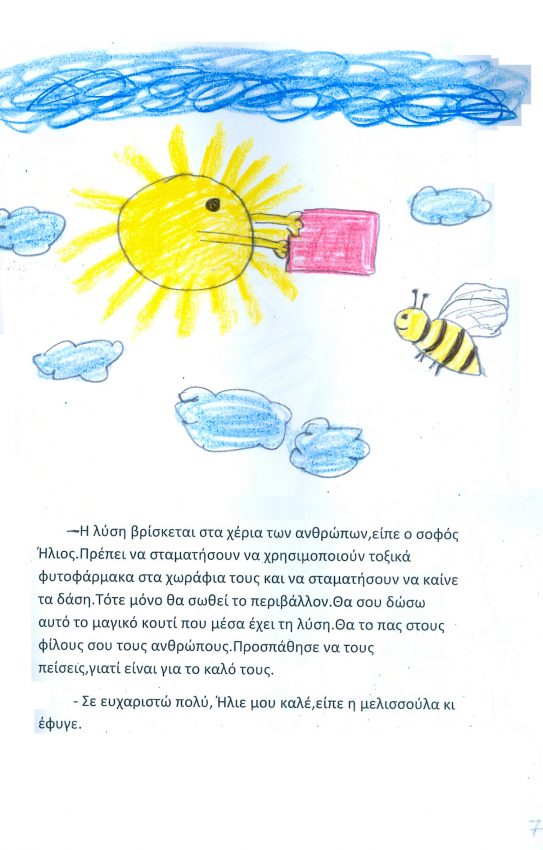 —Η λύση βρίσκεται στα χέρια των ανθρώπων,είπε ο σοφός
Ήλιος.Πρέπει να σταματήσουν να χρησιμοποιούν τοξικά
φυτοφάρμακα στα χωράφια τους και να σταματήσουν να καίνε
τα δάση.Τότε μόνο θα σωθεί το περιβάλλον.Θα σου δώσω
αυτό το μαγικό κουτί που μέσα έχει τη λύση.Θα το πας στους
φίλους σου τους ανθρώπους.Προσπάθησε να τους
πείσεις,γιατί είναι για το καλό τους.
- Σε ευχαριστώ πολύ, Ήλιε μου καλέ,είπε η μελισσούλα κι
έφυγε.
7